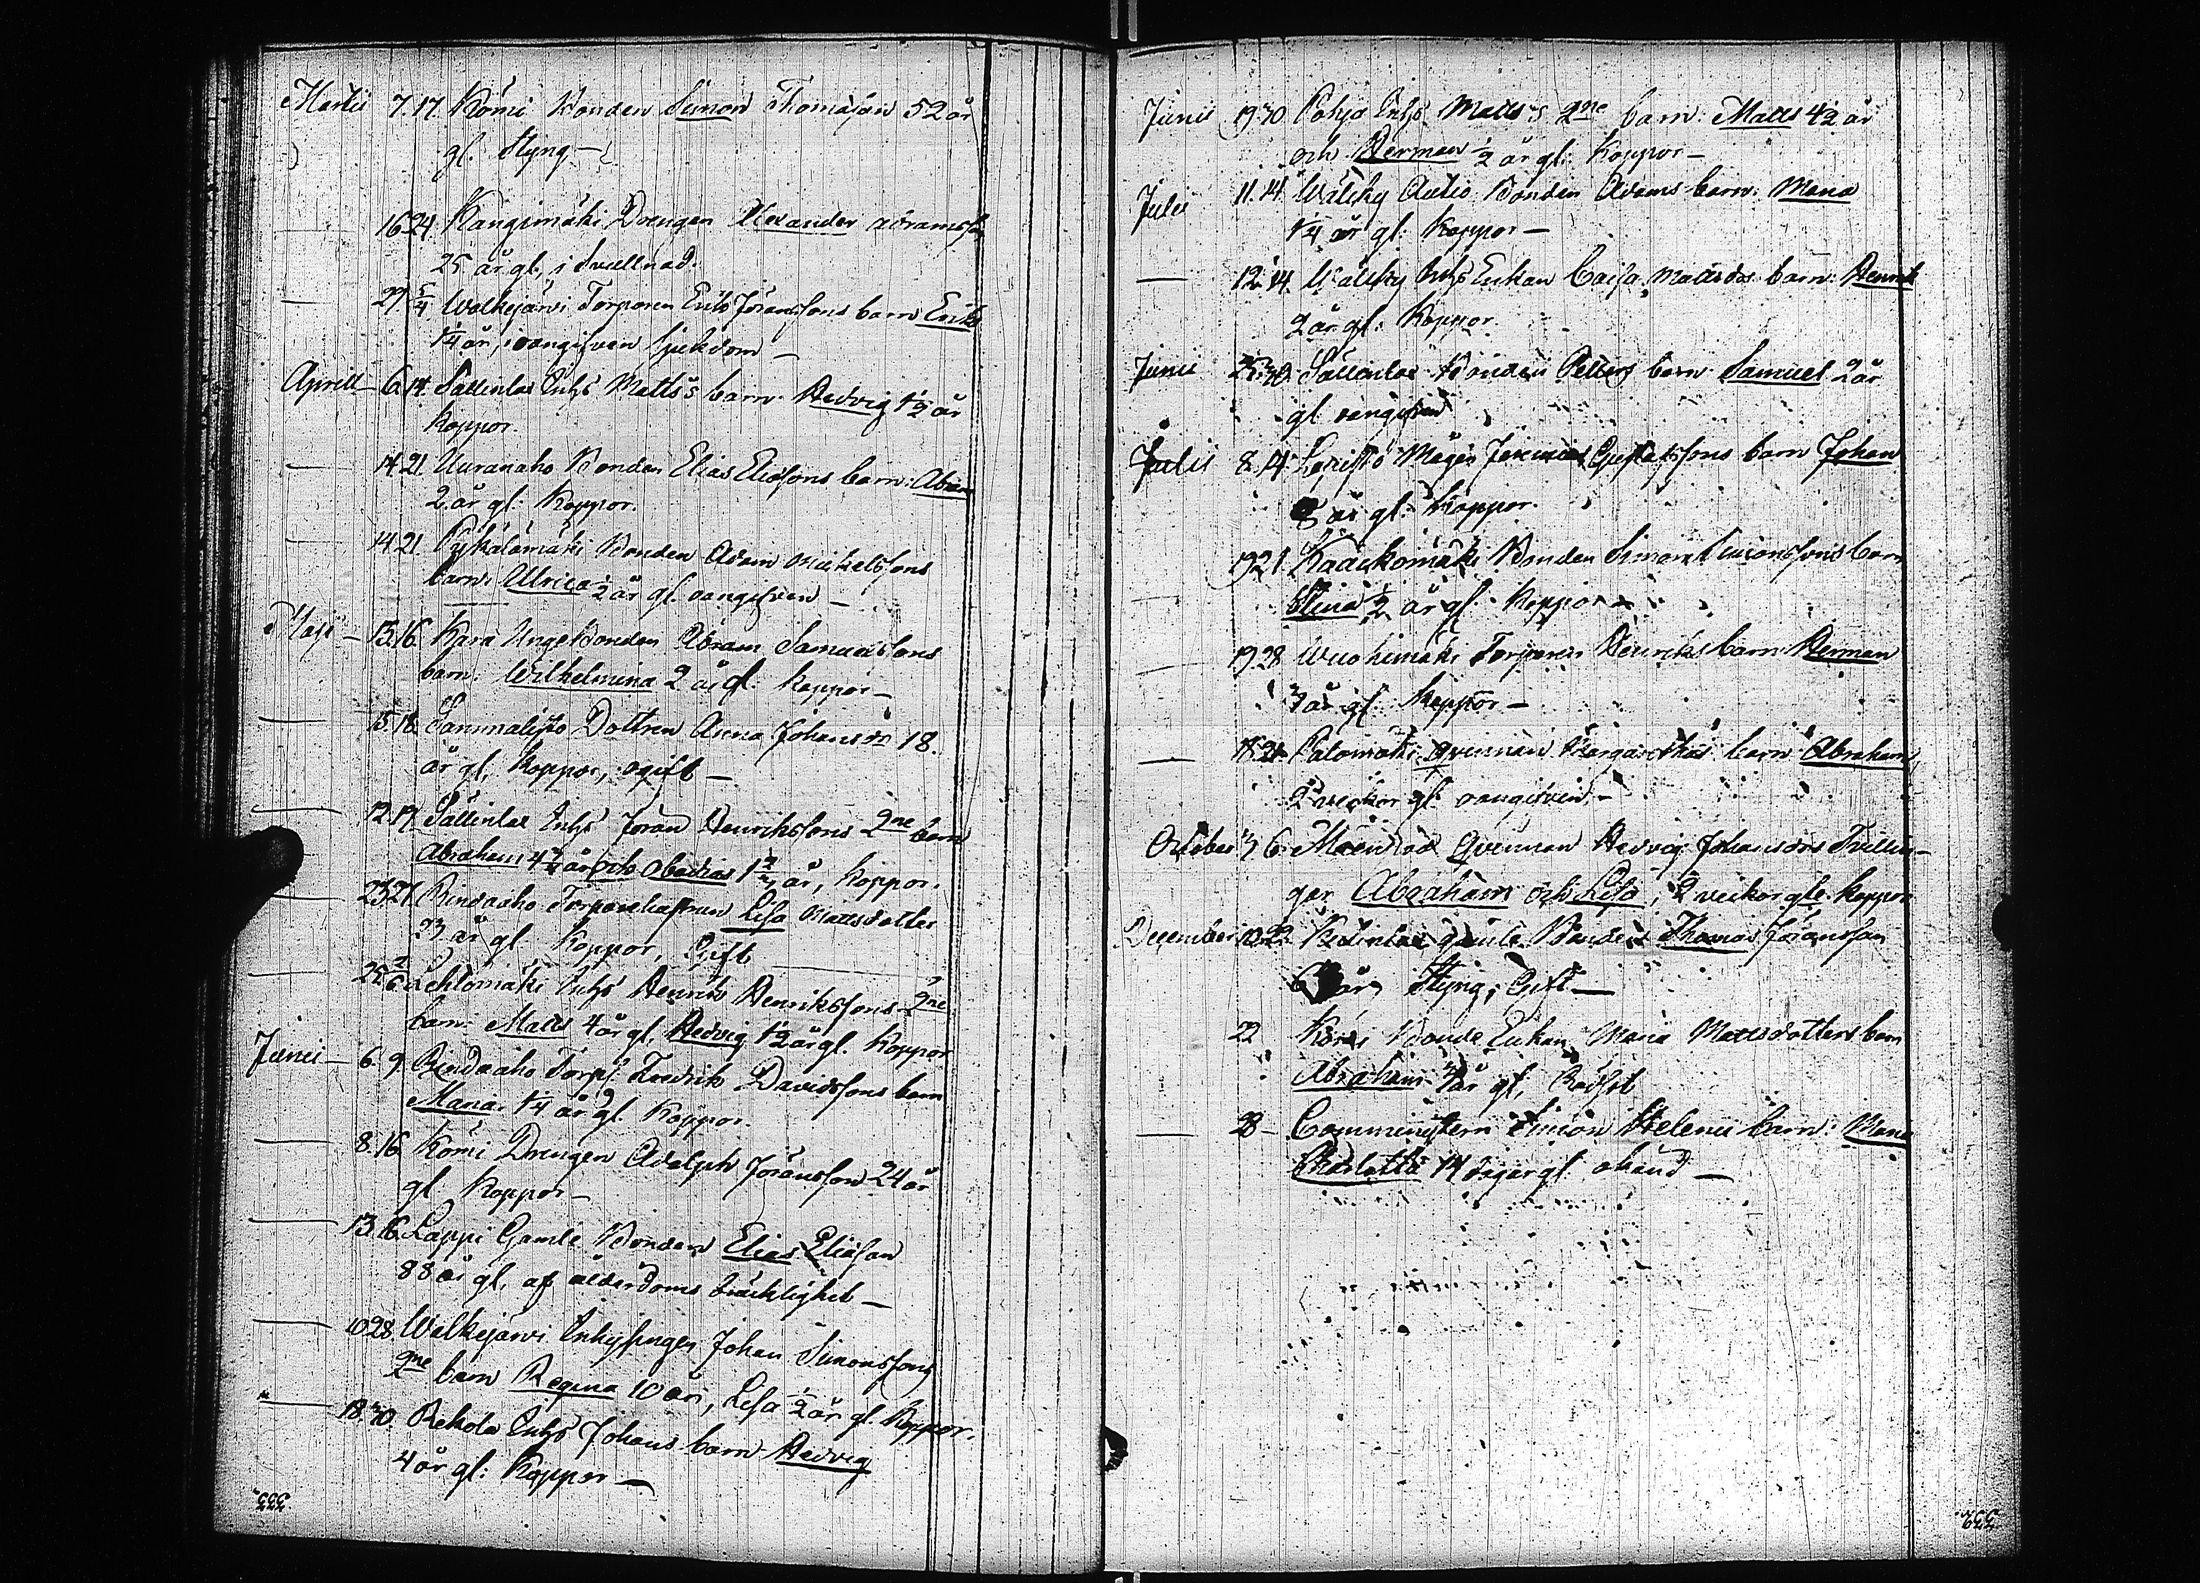 Martii 7. 17. Kömi Bonden Simon Thomasson 52 år
gl. Styng —
16 24. Kangimäki Drengen Alexander Abramsson
25 år gl, i Svullnad.
— 29 5/4 Walkejärvi Torparen Eriks Jöransons barn Eriks
1/4 år, oangifven sjukdom —
Aprill — 6. 14. Sällinlax Inhs Matts's barn Hedvig 1 1/2 år
koppor.
— 14 21. Uuranaho Bonden Elias Eliassons barn: Abram
2 år gl: Koppor.
— 14 21. Pykälämäki Bonden Adam Mickelssons
barn: Ulrica 1/2 år gl. oangifven —
Maji — 13. 16. Kära Unge bonden Abram Samuelssons
barn: Wilhelmina 2 år gl: koppor —
— 15. 18. Sammalisto Dottren Anna Johansdr 18.
år gl, Koppor, ogift —
— 12. 19. Sällinlax Inhs Jöran Henrikssons 2ne barn
Abraham 4 1/2 år och Obadias 1 1/2 år, koppor.
— 23 27. Rindaaho Torparehustrun Lisa Mattsdotter
23 år gl Koppor, Gift
— 25 2/6 Lehtomäki Inhs Henrik Henrikssons 2ne
barn: Matts 4 år gl, Hedvig 1 1/2 år gl. Koppor
Junii — 6. 9. Rindaaho Torp: Fredrik Davidssons barn
Maria 1/4 år gl. Koppor.
— 8. 16. Kömi Drengen Adolph Jöransson 24 år
gl Koppor —
— 13. 16. Lappi Gamle Bonden Elias Eliasson
88 år gl, af ålderdoms bräcklighet —
— 10 28 Walkejärvi Inhysingen Johan Simonssons
2ne barn Regina 10 år, Lisa 1/2 år gl. Koppor.
— 18. 30. Rehola Inhs Johans barn Hedvig
4 år gl: Koppor —
333.
Junii 19. 30. Pohjo Inhs Matts's 2ne barn: Matts 4 1/2 år
och Herman 1/2 år gl: Koppor —
Julii 11. 14. Wälsky Autio Bonden Adams barn: Maria
1/4 år gl: Koppor —
— 12. 14. Wälsky Inhs Enkan Caisa Mattsdrs barn: Henrik
2 år gl: Koppor.
Junii 25. 30. Sällinlax Bonden Petters barn Samuel 2 år
gl oangifven
Julii 8. 14. Måges Jeremias Gustafssons barn Johan
år gl: Koppor.
19 21 Kaackomäki Bonden Simon Simonssons barn
Stina 1/2 år gl. Koppor —
— 19. 28. Wuohimäki Torparen Henriks barn Herman
år gl. Koppor —
— 18. 21. Palomäki qvinnan Margarethas barn Abraham
2 veckor gl oangifven —
October 6. Qvinnan Hedvig Johansdrs Tvillin-
gar Abraham och Lisa, 2 veckor gle. koppor
December 10. 22. gamle Bonden Thomas Jöransson
6 år, Styng, Gift —
22 Bonde Enkan Maria Mattsdotters barn
Abraham år gl, Rödsot
— 28 — Comministern Simon Helenii barn: Maria
Charlotta 14 dagar gl. okänd —